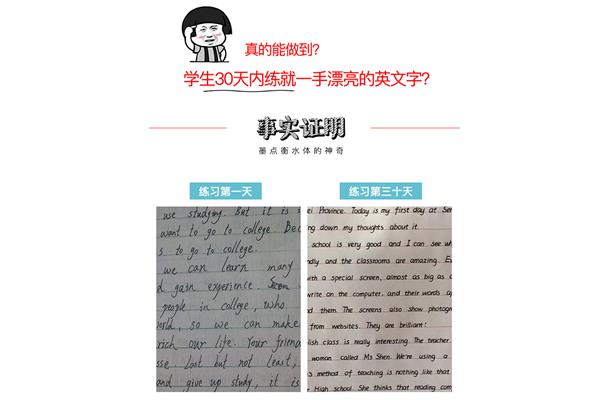 真的能做到?
学生30天内练就一手漂亮的英文字?
事实证明
墨点衡水体的神奇
练习第一天
练习第三十天
use studying. But it is
want to go to college. Bec
s to go to college.
we can learn many
d gain experience. Seem
people in collge, who
orld, so we can make
rich our life. Your friend
sse. Last but not least,
and give up study, it is
ei Province. Today is my first day at Sen
ng down my thoughts about it.
school is very good and I can see wh
ndly and the classrooms are amazing. Ev
with a special screen, almost as big as a
write on the computer, and their words ap
d them. The screens also show photogr
from websites. They are brilliant!
lish class is really interesting. The teacher
woman called Ms Shen. We're using a
s method of teaching is nothing like that
r High school. She thinks that reading com